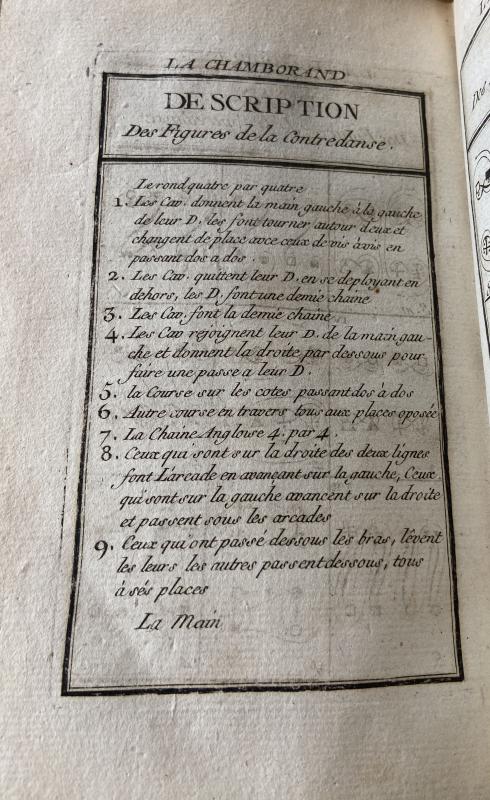 LA CHAMBORAND
DESCRIPTION
Des Figures de la Contredanse.
Le rond quatre par quatre
1. Les Cav. donnent la main gauche à la gauche
de leur D. les font tourner autour deux et
changent de place avce ceux de vis àvis en
passant dos a dos.
2. Les Cav. quittent leur D. en se deployant en
dehors, les D. font une demie chaine
3. Les Cav. font la demie chaine
4. Les Cav rejoignent leur D. de la main gau-
che et donnent la droite par dessous pour
faire une passe a leur D.
5. la Course sur les cotes passant dos à dos
6. Autre course en travers tous aux places oposée
7. La Chaine Angloise 4. par 4.
8. Ceux qui sont sur la droite des deux lignes
font L'arcade en avançant sur la gauche, Ceux
qui sont sur la gauche avancent sur la droite
et passent sous les arcades
9. Ceux qui ont passé dessous les bras, lêvent
les leurs les autres passent dessous, tous
à sés places
La Main